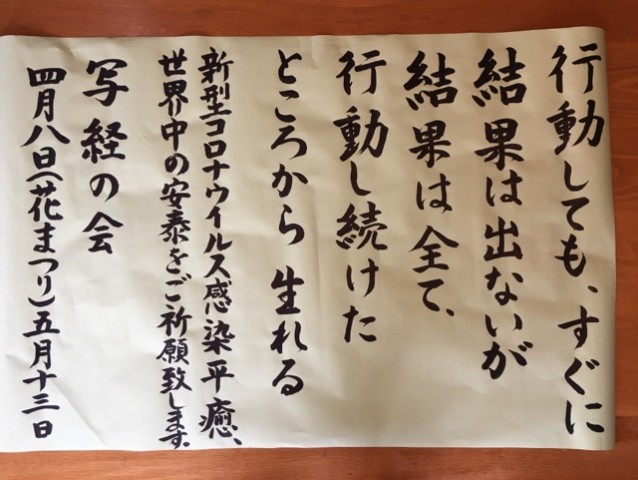 行動しても、すぐに
結果は出ないが
結果は、全て、
行動し続けた
ところから生れる
新型コロナウイルス感染平癒、
世界中の安泰をご祈願致します。
写経の会
四月八日(花まつり)五月十三日